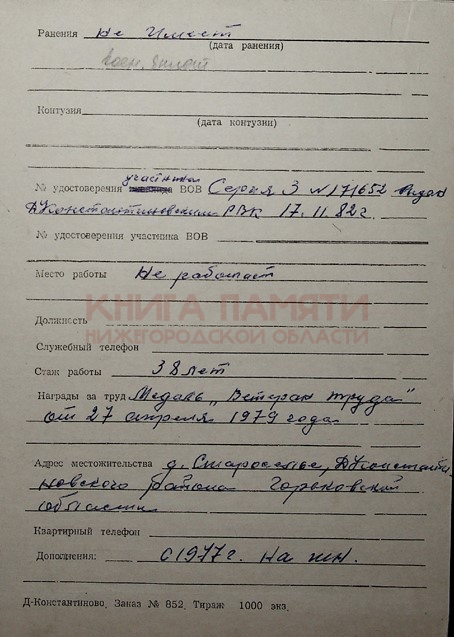 Ранения Не Имеет
(дата ранения)
Контузия
(дата контузии)
участника
№ удостоверения ВОВ Серия З № 171652 выдан
Д Константиновским РВК 17.11.82 г.
№ удостоверения участника ВОВ
Место работы Не работает
КНИГА ПАМЯТИ
НИЖЕГОРОДСКОЙ ОБЛАСТИ
Должность
Служебный телефон
Стаж работы 38 лет
Награды за труд Медаль „Ветеран труда"
от 27 апреля 1979 года
Адрес местожительства д. Староселье, Д Константи
новского района Горьковской
области
Квартирный телефон
Дополнения: с 1977 г. на
Д-Константиново. Заказ № 852. Тираж 1000 экз.